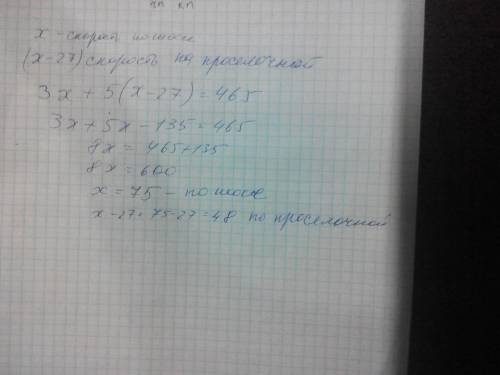 x - скорость по шоссе
(x-27) скорость на проселочной
3x + 5(x-27) = 465
3x + 5x - 135 = 465
8x = 465+135
8x = 600
x = 75 - по шоссе
x-27=75-27=48 по проселочной